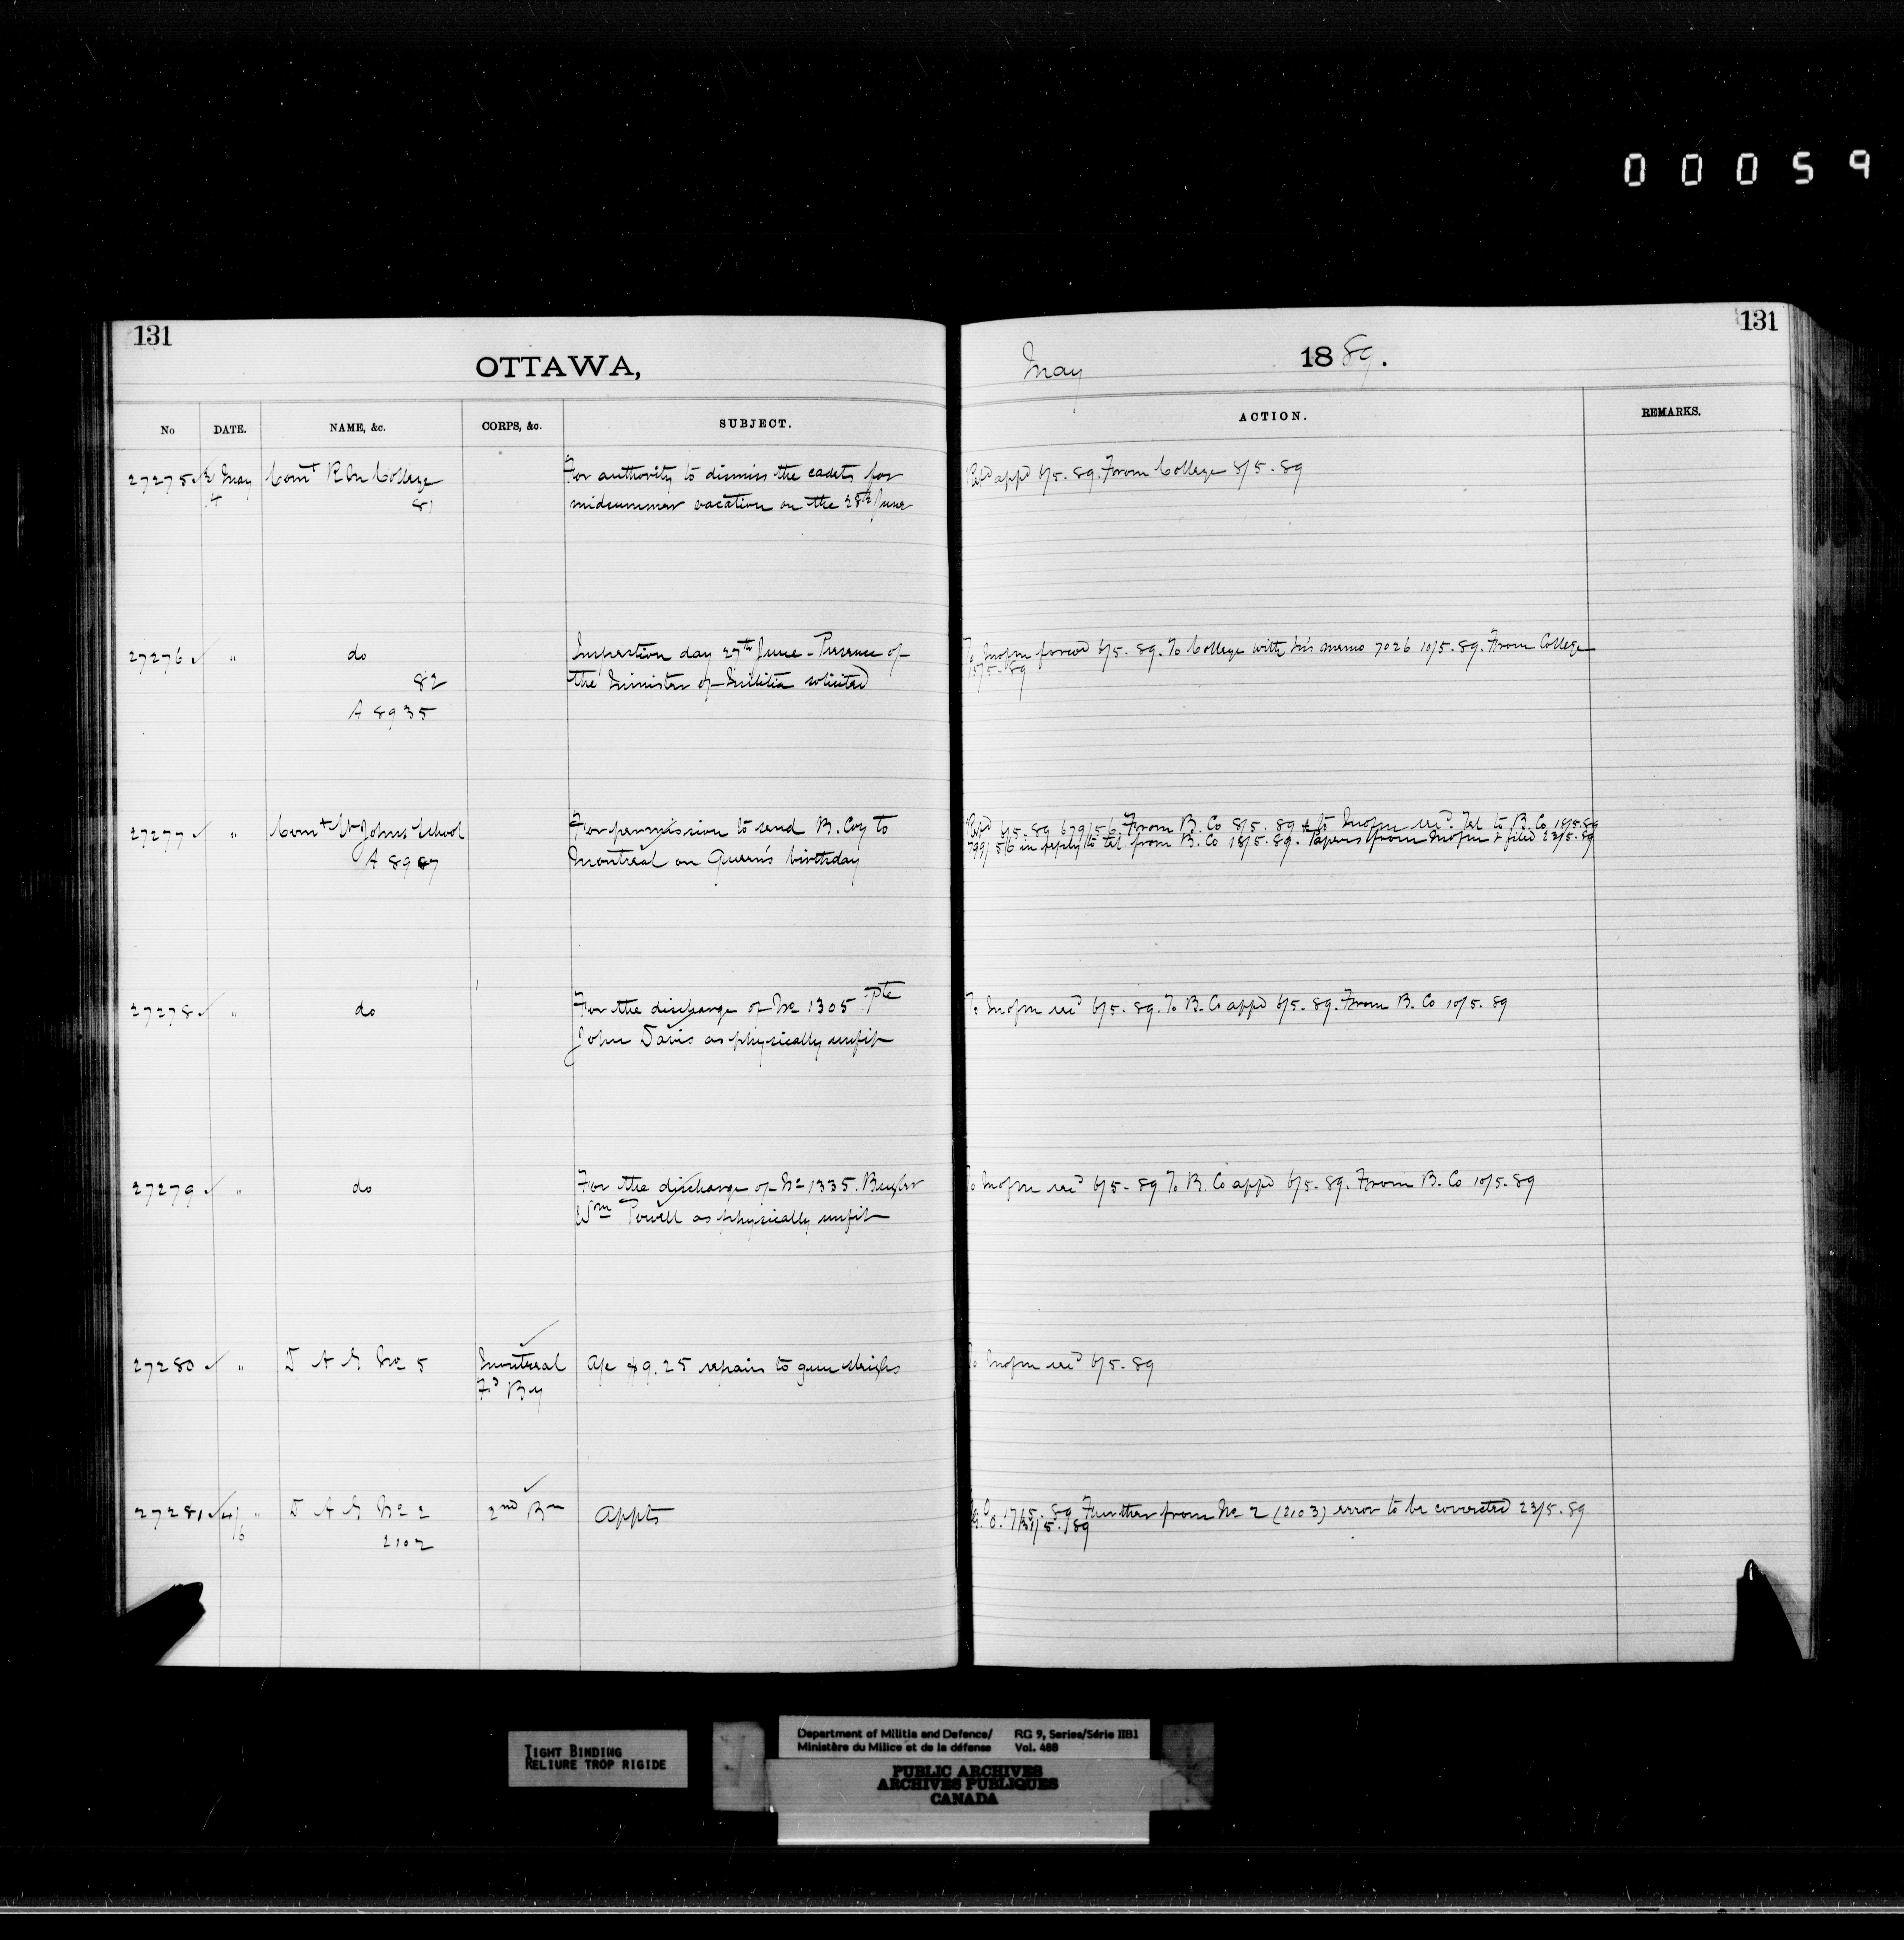 00059
131
OTTAWA,
May 1889.
131
No DATE. NAME, &c. CORPS, &c. SUBJECT. ACTION. REMARKS.
27275 May Comt R M College For authority to dismiss the cadets for appd 6/5.89. From College 8/5.89
4 81 midsummer vacation on the 28th June
27276 " do Inspection day 27th June - Presence of To forwd 6/5.89. To College with memo 7026 10/5.89. From College
82 the Minister of Militia solicited 15/5.89
A 8935
27277 " Comt St Johns School For permission to send B. Coy to 6/5.89 679/56. From B. Co 8/5.89 & to Tel to B. Co 18/5.89
A 8907 Montreal on Queen's birthday 799/56 in reply to tel. from B. Co 18/5.89. Papers from & filed 23/5.89
27278 " do For the discharge of No 1305 Pte To 6/5.89. To B. Co appd 6/5.89. From B. Co 10/5.89
John Davis as physically unfit
27279 " do For the discharge of No 1335. Bugler To 6/5.89 To B. Co appd 6/5.89. From B. Co 10/5.89
Wm Powell as physically unfit
27280 " D A G No 5 Montreal A/c $9.25 repairs to gun sleighs To 6/5.89
Fd By
27281 4/6 " D A G No 2 2nd Bn Appts G.O. 17/5.89 Further from No 2 (2103) error to be corrected 23/5.89
2102 31/5/89
TIGHT BINDING
RELIURE TROP RIGIDE
Department of Militia and Defence/ RG 9, Series/Série IIB1
Ministère du Milice et de la défense Vol. 488
PUBLIC ARCHIVES
ARCHIVES PUBLIQUES
CANADA